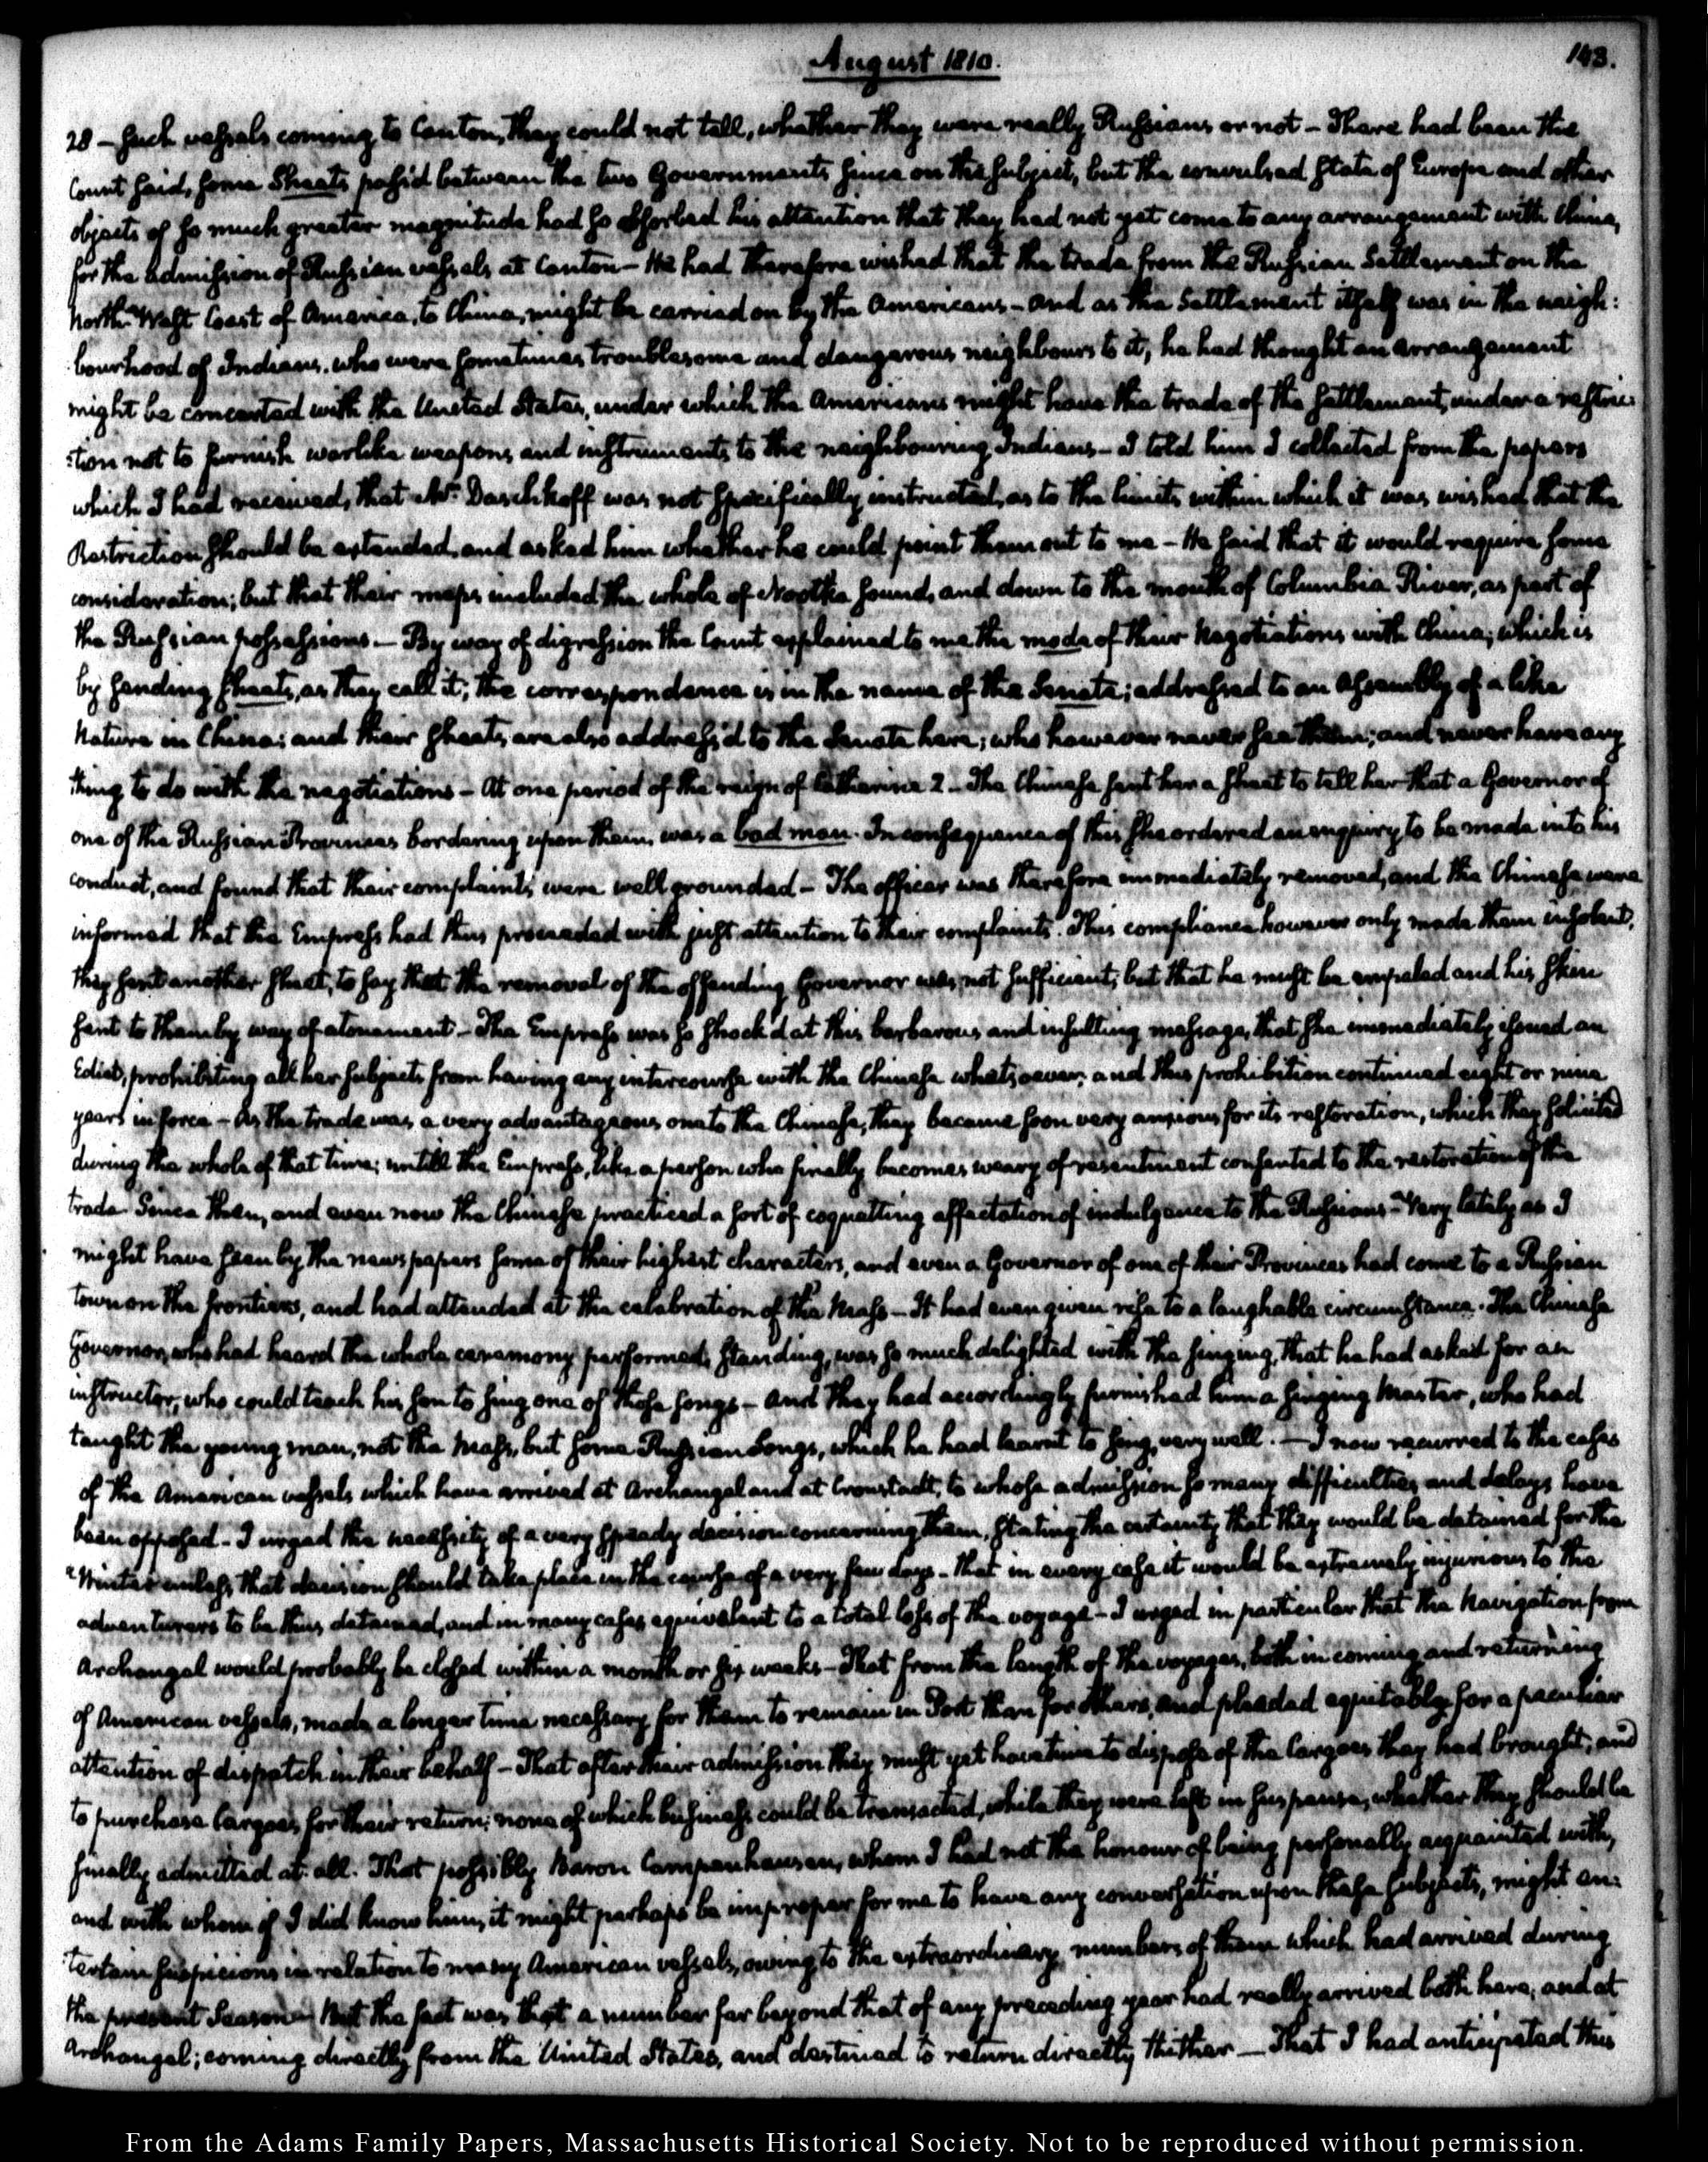 August 1810.
143.
28 — Such vessels coming to Canton, they could not tell, whether they were really Russians or not — There had been the
Count said, some Sheets pass'd between the two Governments since on the subject, but the convulsed State of Europe and other
objects of so much greater magnitude had so absorbed his attention that they had not yet come to any arrangement with China,
for the admission of Russian vessels at Canton — He had therefore wished that the trade from the Russian Settlement on the
North-West Coast of America, to China, might be carried on by the Americans — and as the Settlement itself was in the neigh:
bourhood of Indians, who were sometimes troublesome and dangerous neighbours to it, he had thought an arrangement
might be concerted with the United States, under which the Americans might have the trade of the Settlement, under a restric:
:tion not to furnish warlike weapons and instruments to the neighbouring Indians — I told him I collected from the papers
which I had received, that Mr. Daschkoff was not specifically instructed, as to the limits within which it was wished that the
Restriction should be extended, and asked him whether he could point them out to me — He said that it would require some
consideration; but that their maps included the whole of Nootka Sound, and down to the mouth of Columbia River, as part of
the Russian possessions. — By way of digression the Count explained to me the mode of their Negotiations with China; which is
by sending Sheets, as they call it; the correspondence is in the name of the Senate; addressed to an Assembly of a like
Nature in China; and their sheets are also address'd to the Senate here; who however never see them; and never have any
thing to do with the negotiations — At one period of the reign of Catherine 2 — The Chinese sent her a sheet to tell her that a Governor of
one of the Russian Provinces bordering upon them, was a bad man. In consequence of this she ordered an enquiry to be made into his
conduct, and found that their complaints were well grounded — The officer was therefore immediately removed, and the Chinese were
informed that the Empress had thus proceeded with just attention to their complaints. This compliance however only made them insolent,
they sent another sheet, to say that the removal of the offending Governor was not sufficient; but that he must be empaled and his skin
sent to them by way of atonement — The Empress was so shock'd at this barbarous and insulting message, that she immediately issued an
Edict, prohibiting all her subjects from having any intercourse with the Chinese whatsoever; and this prohibition continued eight or nine
years in force — As the trade was a very advantageous one to the Chinese, they became soon very anxious for its restoration, which they solicited
during the whole of that time; untill the Empress, like a person who finally becomes weary of resentment consented to the restoration of the
trade. Since then, and even now the Chinese practiced a sort of coquetting affectation of indulgence to the Russians — Very lately as I
might have seen by the newspapers some of their highest characters, and even a Governor of one of their Provinces had come to a Russian
town on the frontiers, and had attended at the celebration of the Mass — It had even given rise to a laughable circumstance. The Chinese
Governor, who had heard the whole ceremony performed, standing, was so much delighted with the singing, that he had asked for an
instructor, who could teach his son to sing one of those songs — and they had accordingly furnished him a singing Master, who had
taught the young man, not the Mass, but some Russian Songs, which he had learnt to sing, very well. — I now recurred to the cases
of the American vessels which have arrived at Archangel and at Cronstadt, to whose admission so many difficulties and delays have
been opposed — I urged the necessity of a very speedy decision concerning them, stating the certainty that they would be detained for the
Winter unless that decision should take place in the course of a very few days — that in every case it would be extremely injurious to the
adventurers to be thus detained, and in many cases equivalent to a total loss of the voyage — I urged in particular that the Navigation from
Archangel would probably be closed within a month or six weeks — That from the length of the voyages, both in coming and returning
of American vessels, made a longer time necessary for them to remain in Port than for others, and pleaded equitably for a peculiar
attention of dispatch in their behalf — That after their admission they must yet have time to dispose of the Cargoes they had brought, and
to purchase Cargoes for their return; none of which business could be transacted, while they were left in suspense, whether they should be
finally admitted at all. That possibly Baron Campenhausen, whom I had not the honour of being personally acquainted with,
and with whom if I did know him, it might perhaps be improper for me to have any conversation upon these subjects, might en:
tertain suspicions in relation to many American vessels, owing to the extraordinary numbers of them which had arrived during
the present Season — But the fact was that a number far beyond that of any preceding year had really arrived both here, and at
Archangel; coming directly from the United States, and destined to return directly thither — That I had anticipated this
From the Adams Family Papers, Massachusetts Historical Society. Not to be reproduced without permission.